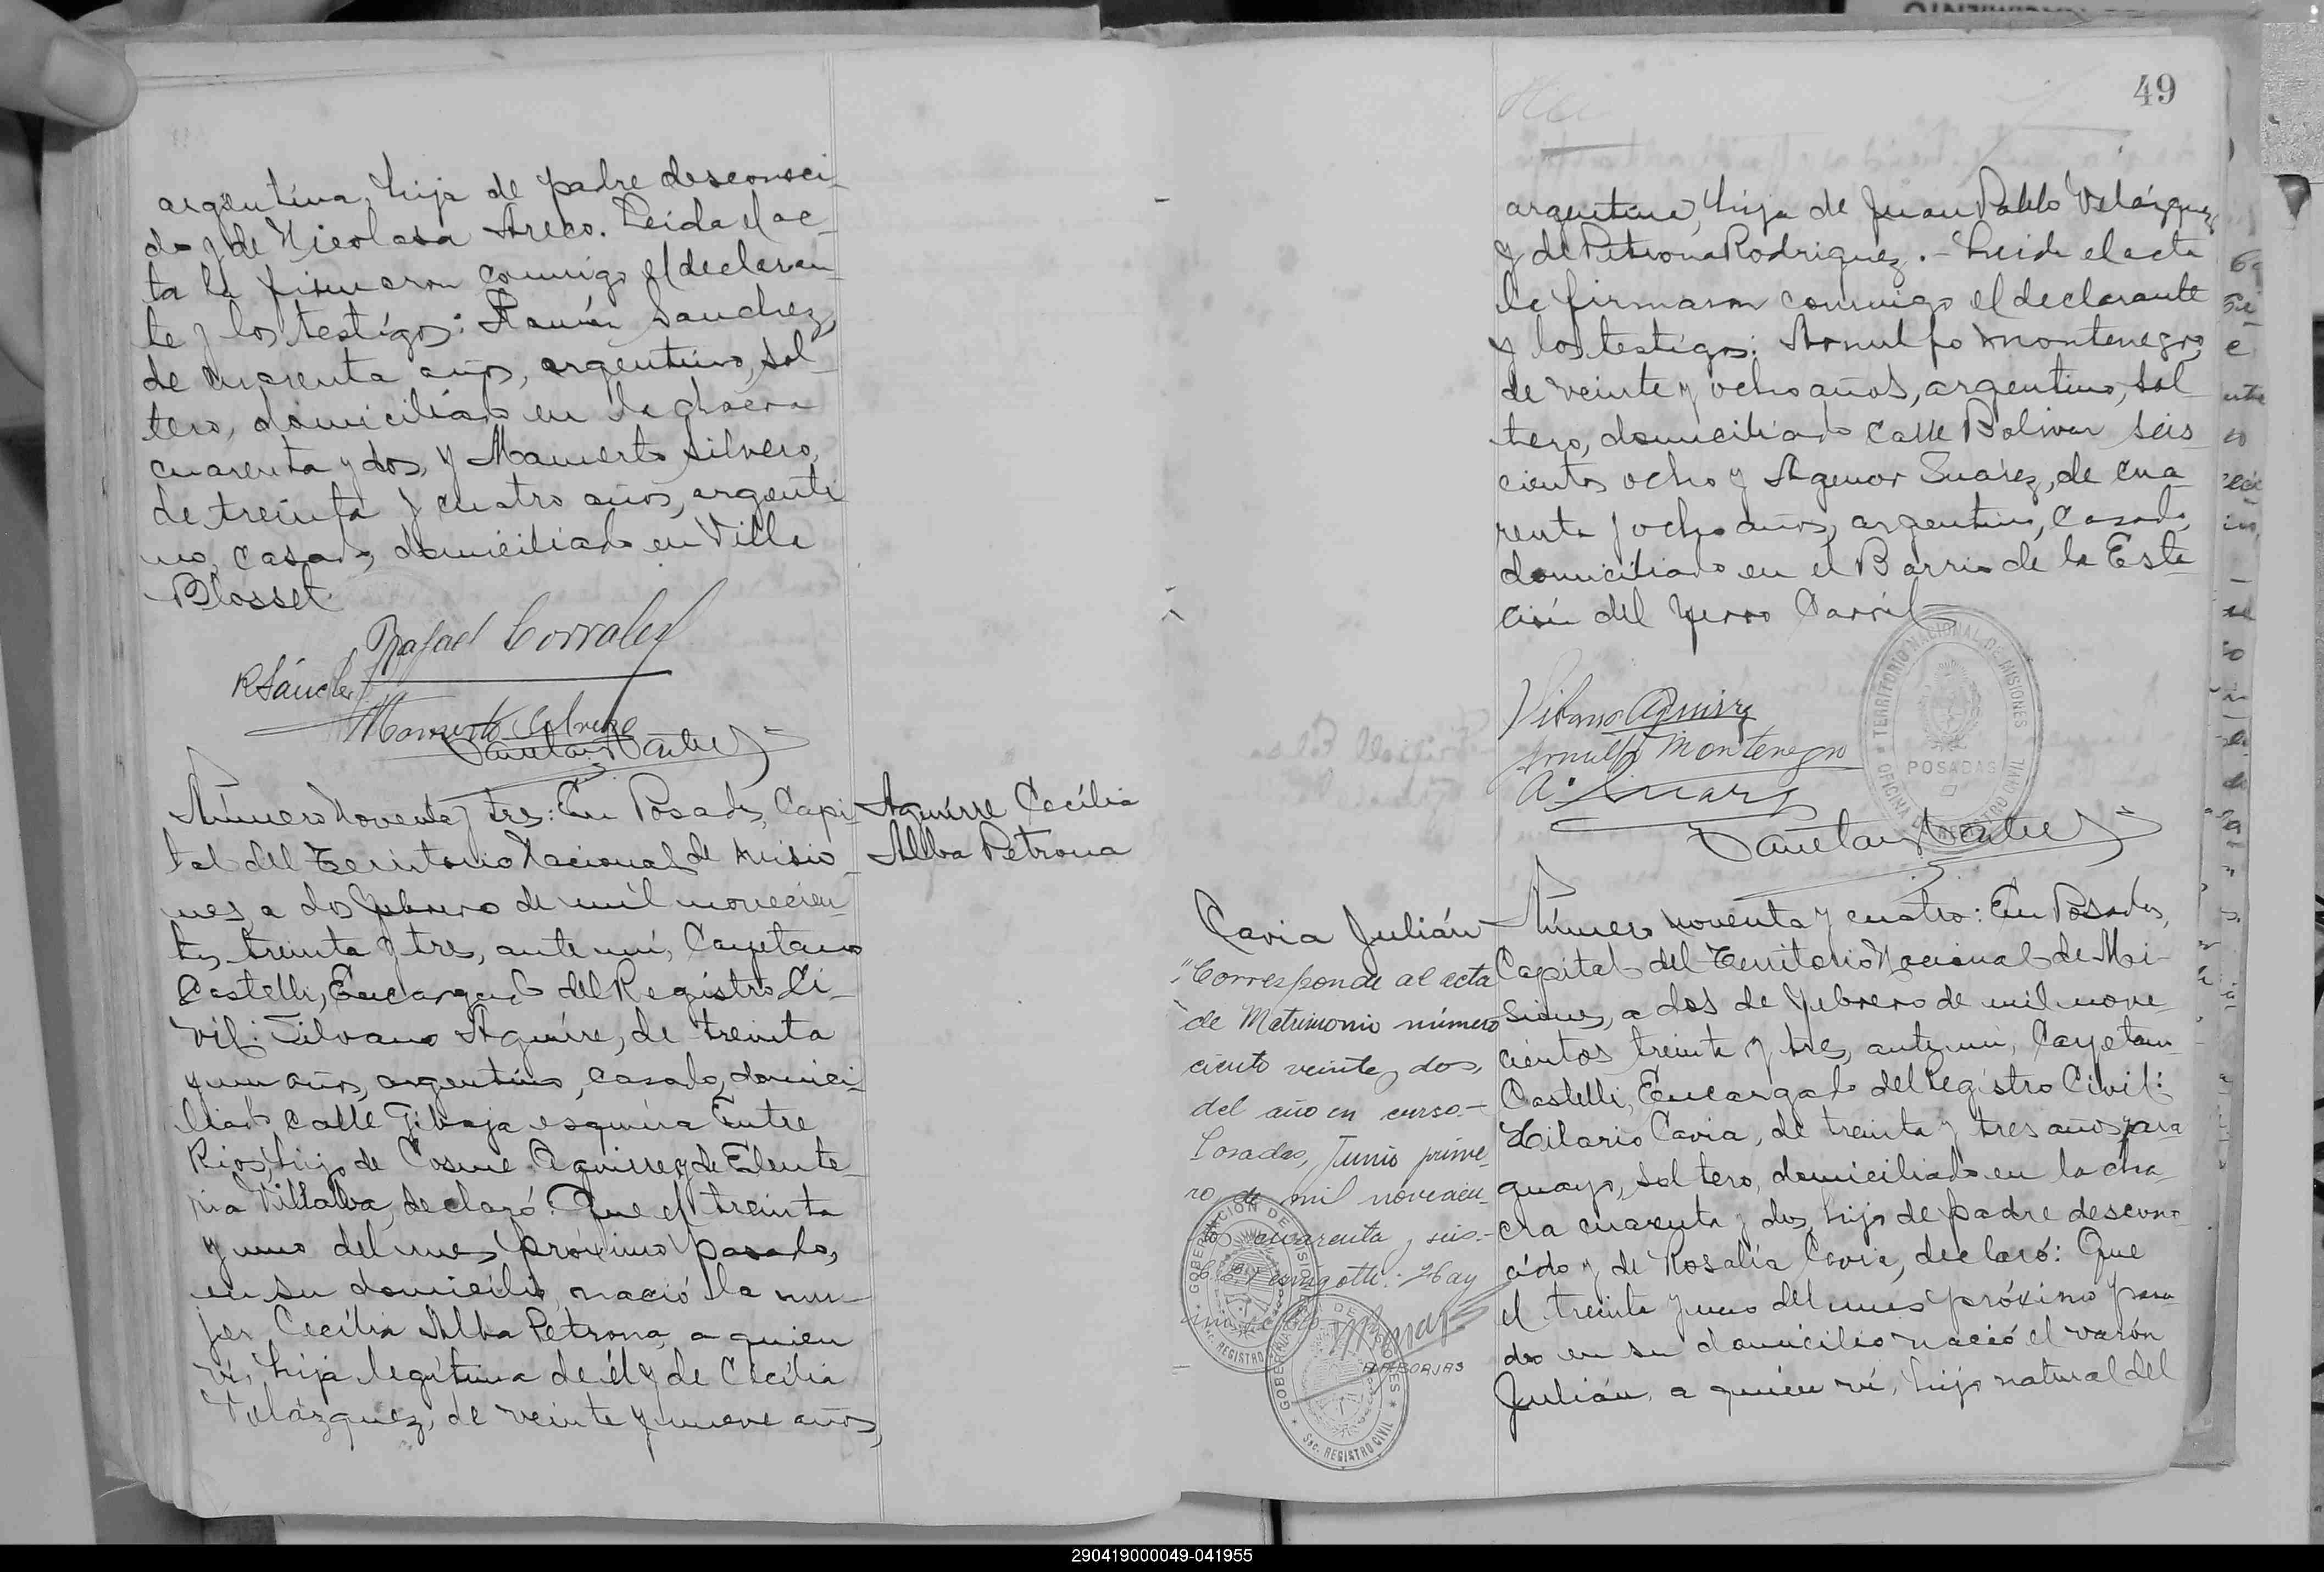 argentina, hija de padre desconoci-
do y de Nicolasa Areco. Leida el ac-
ta la firmaron conmigo el declaran-
te y los testigos: Ramón Sanchez,
de cuarenta años, argentino, sol-
tero, domiciliado en la chacra
cuarenta y dos, y Mamerto Silvero,
de treinta y cuatro años, argenti-
no, casado, domiciliado en Villa
Blosset
Rafael Corrales
R Sánchez
Mamerto Silvero
Número noventa y tres: En Posadas, Capi-
tal del Territorio Nacional de Misio-
nes, a dos febrero de mil novecien-
tos treinta y tres, ante mí, Cayetano
Castelli, Encargado del Registro Ci-
vil: Silvano Aguirre, de treinta
y un años, argentino, casado, domici-
liado calle Tibaja esquina Entre
Rios, hijo de Cosme Aguirre y de Eleute-
ria Villalba, declaró: Que el treinta
y uno del mes próximo pasado,
en su domicilio, nació la mu-
jer Cecilia Alba Petrona, a quien
ví, hija legítima de él y de Cecilia
Velázquez, de veinte y nueve años,
Aguirre Cecilia
Alba Petrona
49
argentina, hija de Juan Pablo Velázquez
y de Petrona Rodriguez.- Leida el acta
la firmaron conmigo el declarante
y los testigos: Arnulfo Montenegro,
de veinte y ocho años, argentino, sol-
tero, domiciliado calle Bolivar seis-
cientos ocho y Agenor Suárez, de cua-
renta y ocho años, argentino, casado,
domiciliado en el Barrio de la Esta-
ción del Ferro Carril
Silvano Aguirre
Arnulfo Montenegro
A. Suarez
TERRITORIO NACIONAL DE MISIONES
POSADAS
OFICINA DEL REGISTRO CIVIL
Cavia Julián
"Corresponde al acta
de Matrimonio número
ciento veinte y dos,
del año en curso.-
Posadas, Junio prime-
ro de mil novecien-
tos cuarenta y seis.-
Hay
GOBERNACION DE MISIONES
Sec. REGISTRO CIVIL
GOBERNACION DE MISIONES
Sec. REGISTRO CIVIL
BORJAS
Número noventa y cuatro: En Posadas,
Capital del Territorio Nacional de Mi-
siones, a dos de febrero de mil nove-
cientos treinta y tres, ante mí, Cayetano
Castelli, Encargado del Registro Civil:
Hilario Cavia, de treinta y tres años, para-
guayo, soltero, domiciliado en la cha-
cra cuarenta y dos, hijo de padre descono-
cido y de Rosalía Cavia, declaró: Que
el treinta y uno del mes próximo pasa-
do en su domicilio nació el varón
Julián, a quién ví, hijo natural del
290419000049-041955